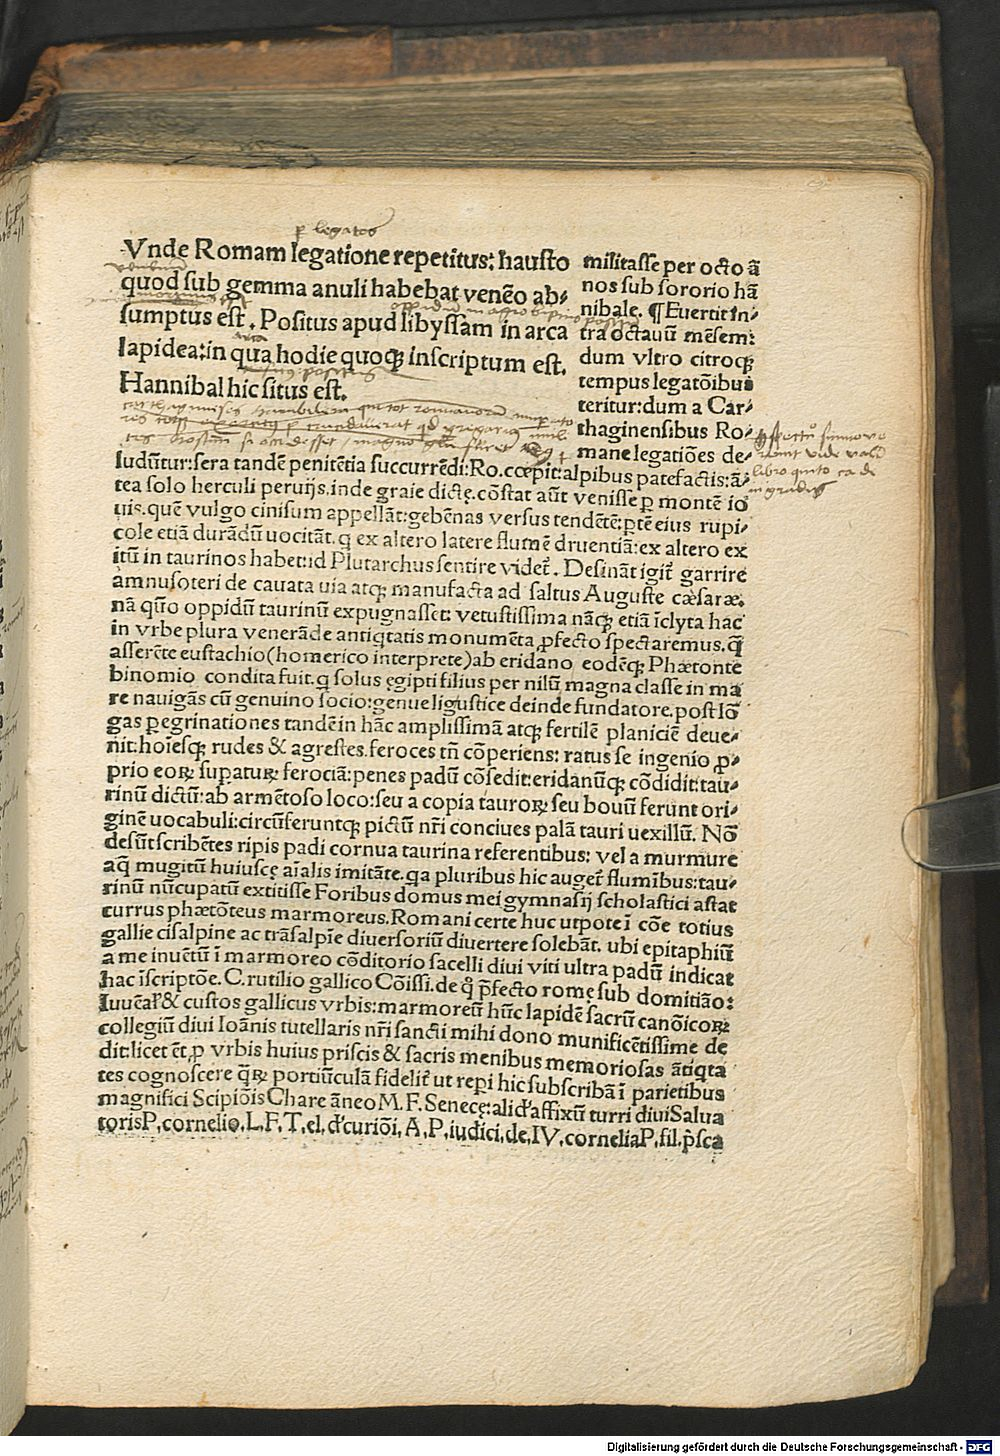 ꝑ legatos
Vnde Romam legatione repetitus: hausto
quod sub gemma anuli habebat venēo ab-
sumptus est. Positus apud libyssam in arca
lapidea: in qua hodie quoqꝫ inscriptum est.
Hannibal hic situs est.
militasse per octo ā
nos sub sororio hā
nibale. ¶ Euertit in-
tra octauū mēsem:
dum vltro citroqꝫ
tempus legatōibus
teritur: dum a Car-
thaginensibus Ro-
mane legatiōes de-
luduntur: sera tandē penitētia succurrēdi: Ro. cœpit: alpibus patefactis: ā-
tea solo herculi peruijs. inde graie dictę. cōstat aūt venisse ꝑ montē io
uis. quē vulgo cinisum appellāt: gebēnas versus tendētē: ꝑtē eius rupi-
cole etiā durādū uocitāt. q ex altero latere flumē druentiā: ex altero ex
itū in taurinos habet: id Plutarchus sentire videt̃. Desināt igit̃ garrire
amnusoteri de cauata uia atqꝫ manufacta ad saltus Auguste cæsaræ.
nā quo oppidū taurinū expugnasset: vetustissima nāqꝫ etiā īclyta hac
in vrbe plura venerāde antiqtatis monumēta ꝓfecto spectaremus. q̄
asserēte eustachio (homerico interprete) ab eridano eodēqꝫ Phætonte
binomio condita fuit. q solus ęgipti filius per nilū magna classe in ma
re nauigās cū genuino socio: genue ligustice deinde fundatore. post lō
gas ꝑegrinationes tandē in hāc amplissimā atqꝫ fertilē planiciē deue-
nit. hoiesqꝫ rudes & agrestes. feroces tn̄ cōperiens: ratus se ingenio ꝓ-
prio eoꝝ supatuꝝ ferociā: penes padū cōsedit: eridanūqꝫ cōdidit: tau-
rinū dictū: ab armētoso loco: seu a copia tauroꝝ seu bouū ferunt ori-
ginē uocabuli: circūferuntqꝫ pictū nr̄i conciues palā tauri uexillū. Nō
desūt scribētes ripis padi cornua taurina referentibus: vel a murmure
aq̄ mugitū huiuscę aīalis imitāte. qa pluribus hic auget̃ flumībus: tau-
rinū nūcupatū extitisse Foribus domus mei gymnasij scholastici astat
currus phætōteus marmoreus. Romani certe huc utpote ī cōe totius
gallie cisalpine ac trāsalpīe diuersoriū diuertere solebāt. ubi epitaphiū
a me inuētū ī marmoreo cōditorio sacelli diui viti ultra padū indicat
hac īscriptōe. C. rutilio gallico Cōissi. de q̊ p̄fecto romę sub domitiāo:
Iuuēal̓ & custos gallicus vrbis: marmoreū hūc lapidē sacrū canōicoꝝ
collegiū diui Ioānis tutellaris nr̄i sancti mihi dono munificētissime de
dit: licet ēt, ꝓ vrbis huius priscis & sacris menibus memoriosas āṫiqta
tes cognoscere q̄ꝝ portiūculā fidelit̃ ut reꝑi hic subscribā ī parietibus
magnifici Scipiōis Chare āneo M. F. Senecę: alid̓ affixū turri diui Salua
toris P. cornelio. L. F. T. el. d̓curiōi. A. P. iudici. de. IV. cornelia P. fil. p̄sca
vide vall
libro quinto ca de
Digitalisierung gefördert durch die Deutsche Forschungsgemeinschaft - DFG